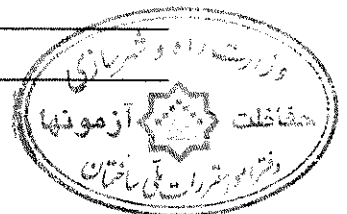 وزارت راه و شهرسازی
حفاظت آزمونها
دفتر امور مقررات ملی ساختمان